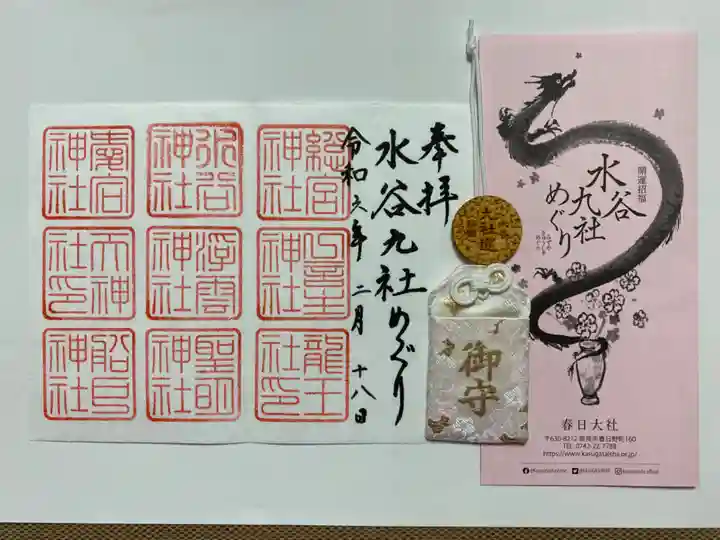 奉拝
水谷九社めぐり
令和六年二月十八日
總宮
神社
水谷
神社
南宮
神社
神社
浮雲
神社
大神
社印
龍王
社印
聖明
神社
船戸
神社
御守
開運招福
水谷
九社
めぐり
みずや
きゅうしゃ
めぐり
春日大社
〒630-8212 奈良市春日野町160
TEL. 0742-22-7788
https://www.kasugataisha.or.jp/